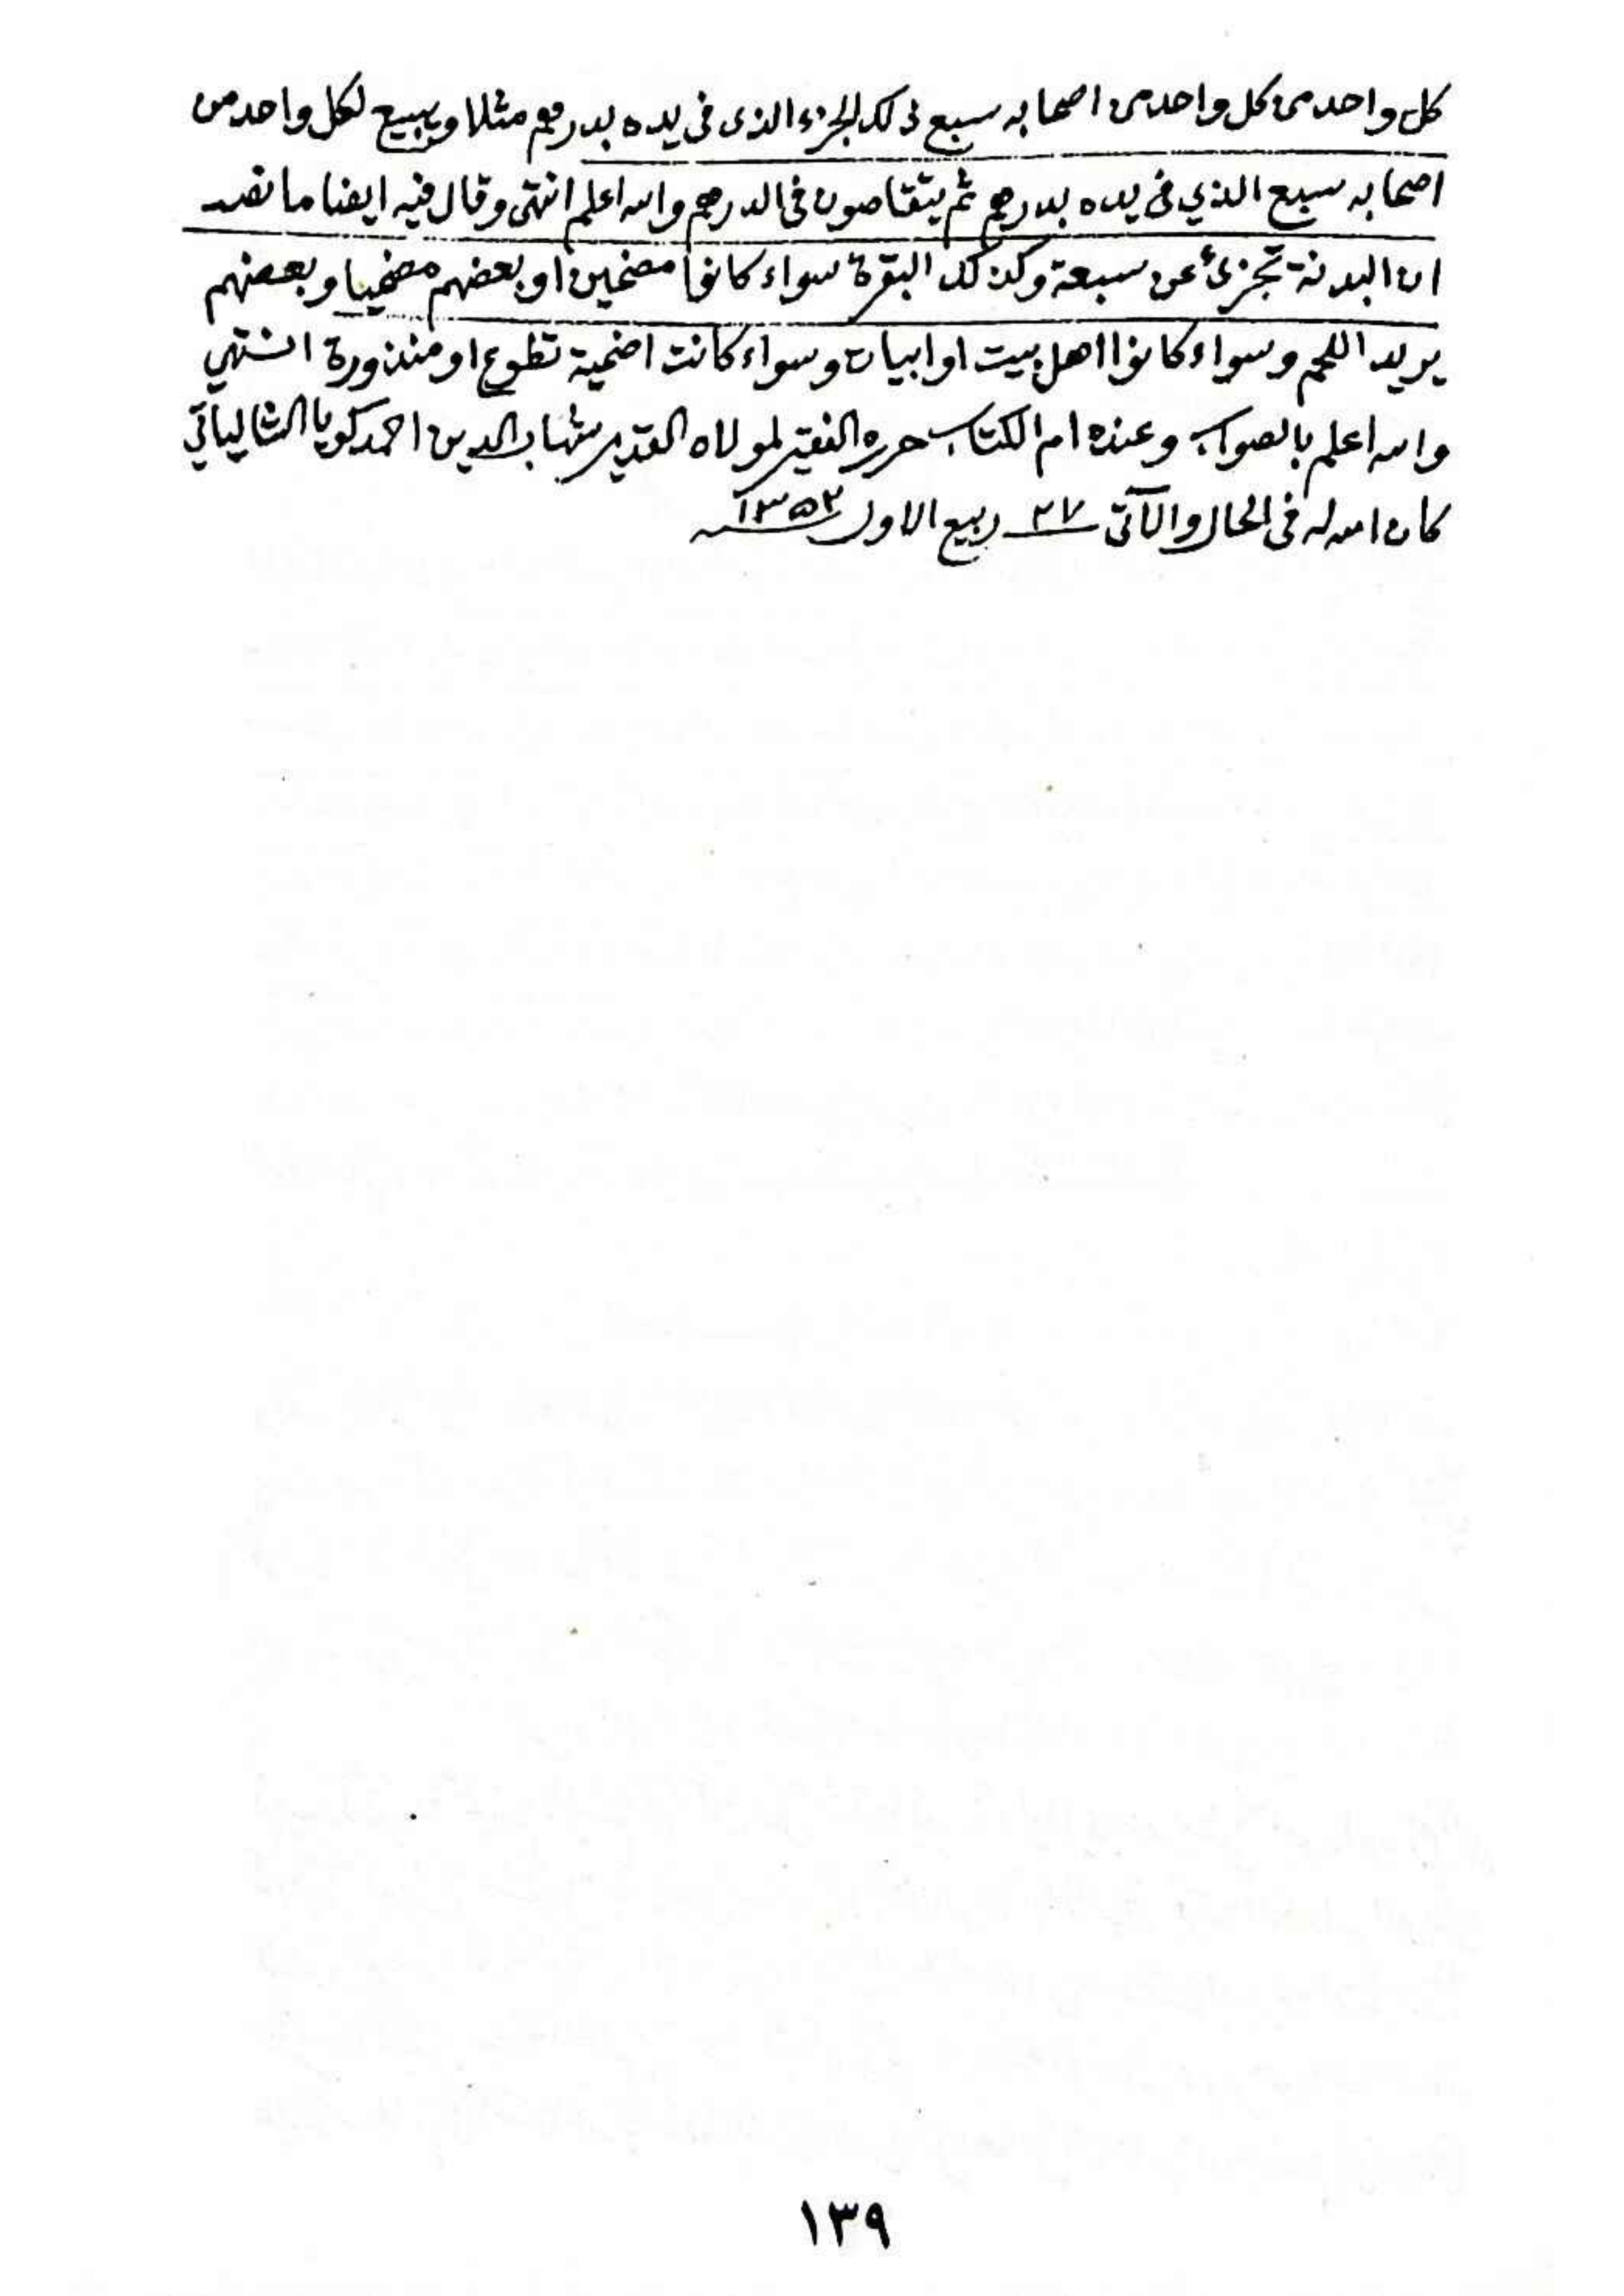 كل واحد من كل واحد من اصحابه سبع ذلك الجزء الذى فى يده بدرهم مثلا ويبيع لكل واحد من
اصحابه سبع الذي فى يده بدرهم ثم يتقاصون فى الدرهم والله اعلم انتهى وقال فيه ايضا ما نصه
ان البدنة تجزئ عن سبعة وكذلك البقرة سواء كانوا مضحين او بعضهم مضحيا وبعضهم
يريد اللحم وسواء كانوا اهل بيت او ابيات وسواء كانت اضحية تطوع او منذورة انتهي
والله اعلم بالصواب وعنده ام الكتاب حرره الفقير لمولاه القدير شهاب الدين احمد كويا الشالياتي
كان الله له فى الحال والآتى ٢٧ ربيع الاول ١٣٥٢
١٣٩